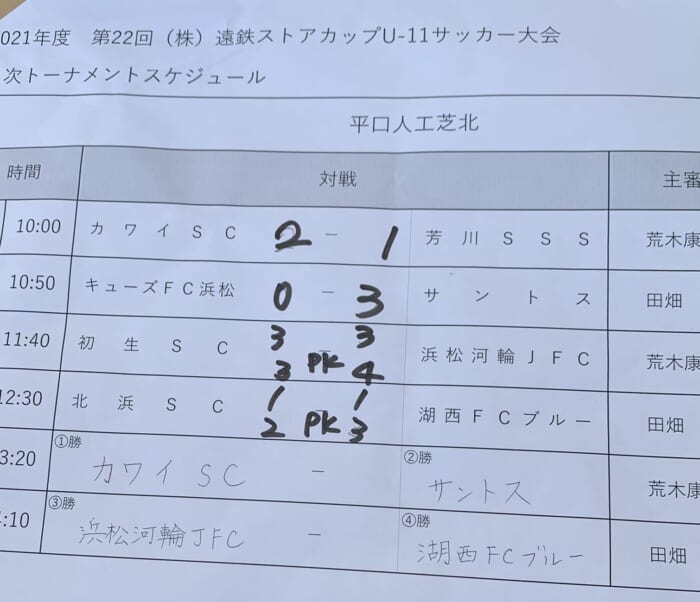 021年度　第22回（株）遠鉄ストアカップU-11サッカー大会
次トーナメントスケジュール
平口人工芝北
時間 対戦 主審
10:00 カワイSC 2 － 1 芳川SSS 荒木康
10:50 キューズFC浜松 0 － 3 サントス 田畑
11:40 初生SC 3 － 3 浜松河輪JFC 荒木康
3 PK 4
12:30 北浜SC 1 － 1 湖西FCブルー 田畑
2 PK 3
①勝 ②勝
3:20 カワイSC － サントス 荒木康
③勝 ④勝
:10 浜松河輪JFC － 湖西FCブルー 田畑